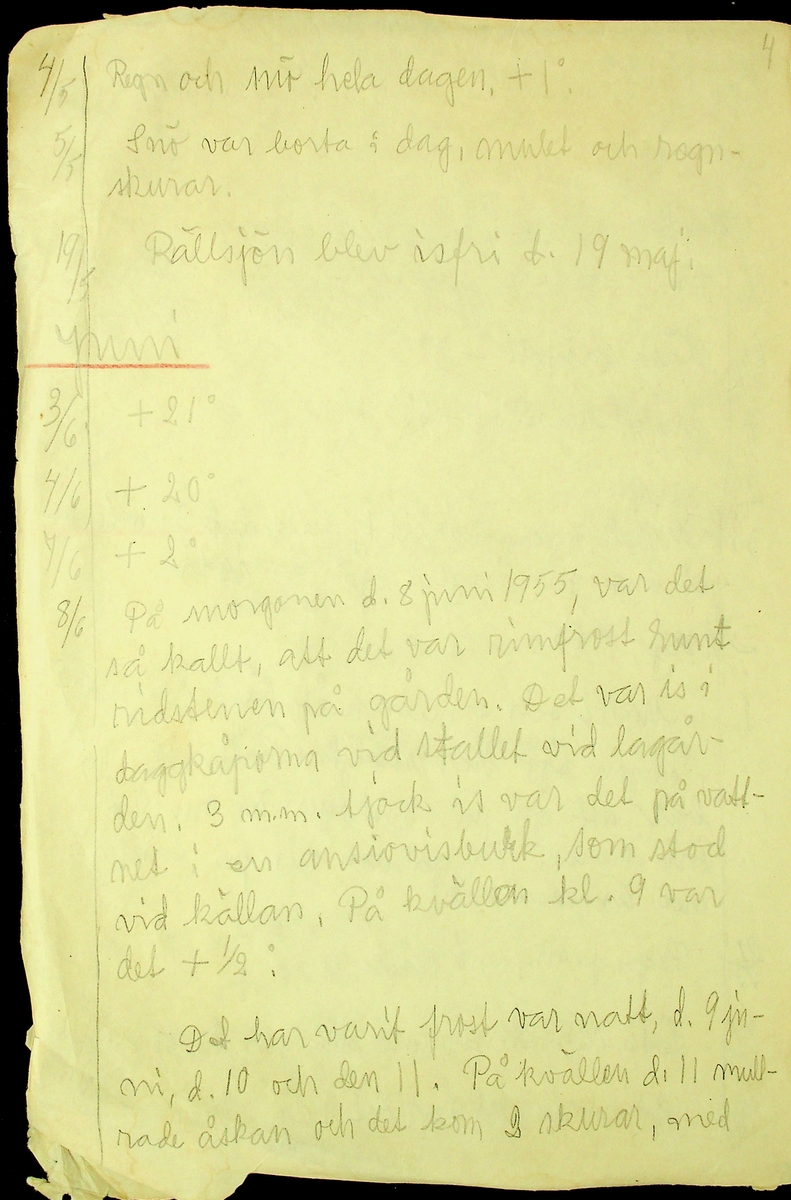 4
4/5 Regn och snö hela dagen, +1°.
5/5 Snö var borta i dag, mulet och regn-
skurar.
19/5 Rällsjön blev isfri d. 19 maj.
Juni
3/6 +21°
4/6 +20°
7/6 +2°
8/6 På morgonen d. 8 juni 1955, var det
så kallt, att det var rimfrost runt
ridstenen på gården. Det var is i
daggkåporna vid stallet vid lagår-
den. 3 m.m. tjock is var det på vatt-
net i en ansiovisburk, som stod
vid källan. På kvällen kl. 9 var
det + 1/2°.
Det har varit frost var natt, d. 9 ju-
ni, d. 10 och den 11. På kvällen d. 11 mull-
rade åskan och det kom 2 skurar, med